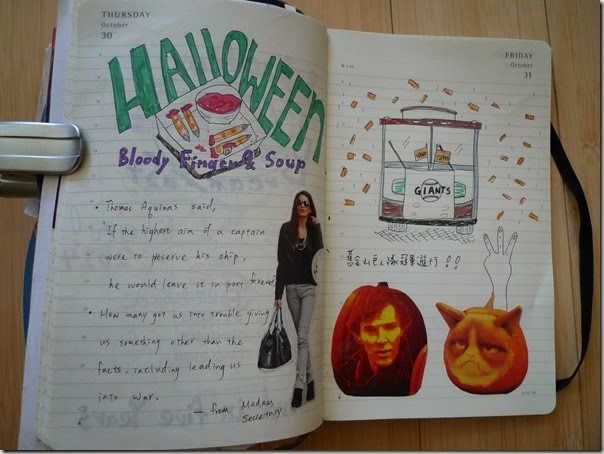 THURSDAY
October
30
HALLOWEEN
Bloody Finger & Soup
• Thomas Aquinas said,
If the highest aim of a captain
were to preserve his ship,
he would leave it in port forever.
• How many got us into trouble giving
us something other than the
facts, including leading us
into war.
— from Madam
Secretary
FRIDAY
October
31
GIANTS
舊金山巨人隊冠軍遊行!!